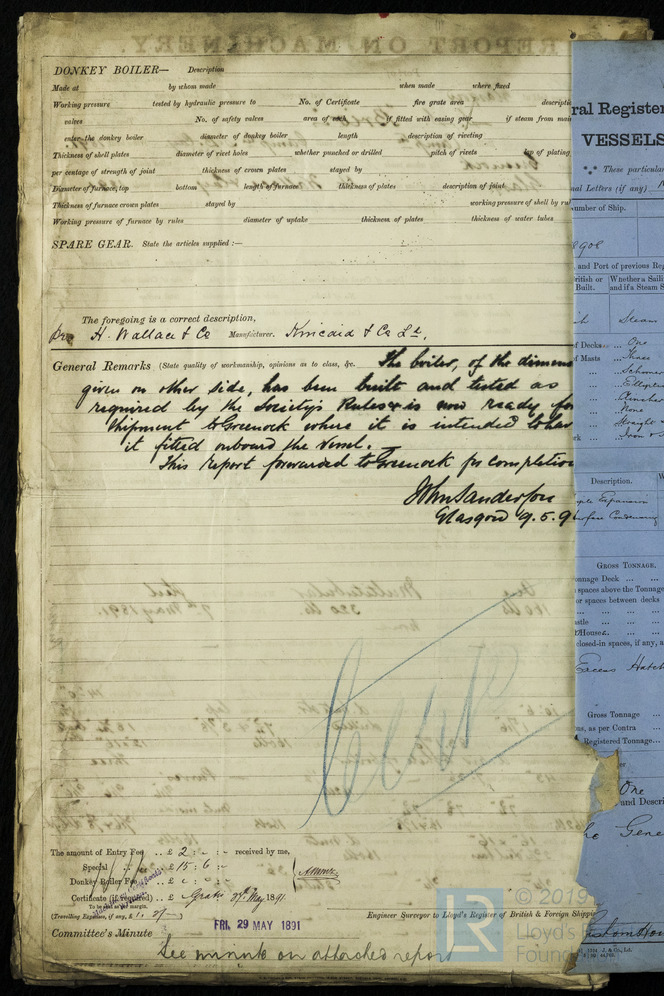 DONKEY BOILER— Description
Made at by whom made when made where fixed
Working pressure tested by hydraulic pressure to No. of Certificate fire grate area descripti
valves No. of safety valves area of each if fitted with easing gear if steam from mai
enter the donkey boiler diameter of donkey boiler length description of riveting
Thickness of shell plates diameter of rivet holes whether punched or drilled pitch of rivets lap of plating
per centage of strength of joint thickness of crown plates stayed by
Diameter of furnace, top bottom length of furnace thickness of plates description of joint
Thickness of furnace crown plates stayed by working pressure of shell by ru
Working pressure of furnace by rules diameter of uptake thickness of plates thickness of water tubes
SPARE GEAR. State the articles supplied :—
The foregoing is a correct description,
H. Wallace & Co Manufacturer. Kincaid & Co Ld,
General Remarks (State quality of workmanship, opinions as to class, &c. The boiler, of the dimens
given on other side, has been built and tested as
required by the Society's Rules & is now ready for
shipment to Greenock where it is intended to hav
it fitted onboard the vessel.
This report forwarded to Greenock for completion
John Sanderson
Glasgow 9.5.9
The amount of Entry Fee .. £ 2 : - : - received by me,
Special .. £ 15 : 6 : -
Donkey Boiler Fee .. £
Certificate (if required) .. £ Gratis May 1891
To be sent as per margin.
(Travelling Expenses, if any, £
Engineer Surveyor to Lloyd's Register of British & Foreign Shippi
Committee's Minute FRI. 29 MAY 1891
See minute on attached report
ral Register
VESSELS
These particular
nal Letters (if any)
umber of Ship.
and Port of previous Reg
British or Built. Whether a Saili and if a Steam S
Steam
of Decks ... One
of Masts ... Three
Schooner
None
Straight
Iron
Description.
GROSS TONNAGE.
onnage Deck
spaces above the Tonnage
or spaces between decks
closed-in spaces, if any, a
Excess Hatch
Gross Tonnage
ns, as per Contra
Registered Tonnage
One
and Descri
Gene
LR
© 2019
Lloyd's
Found